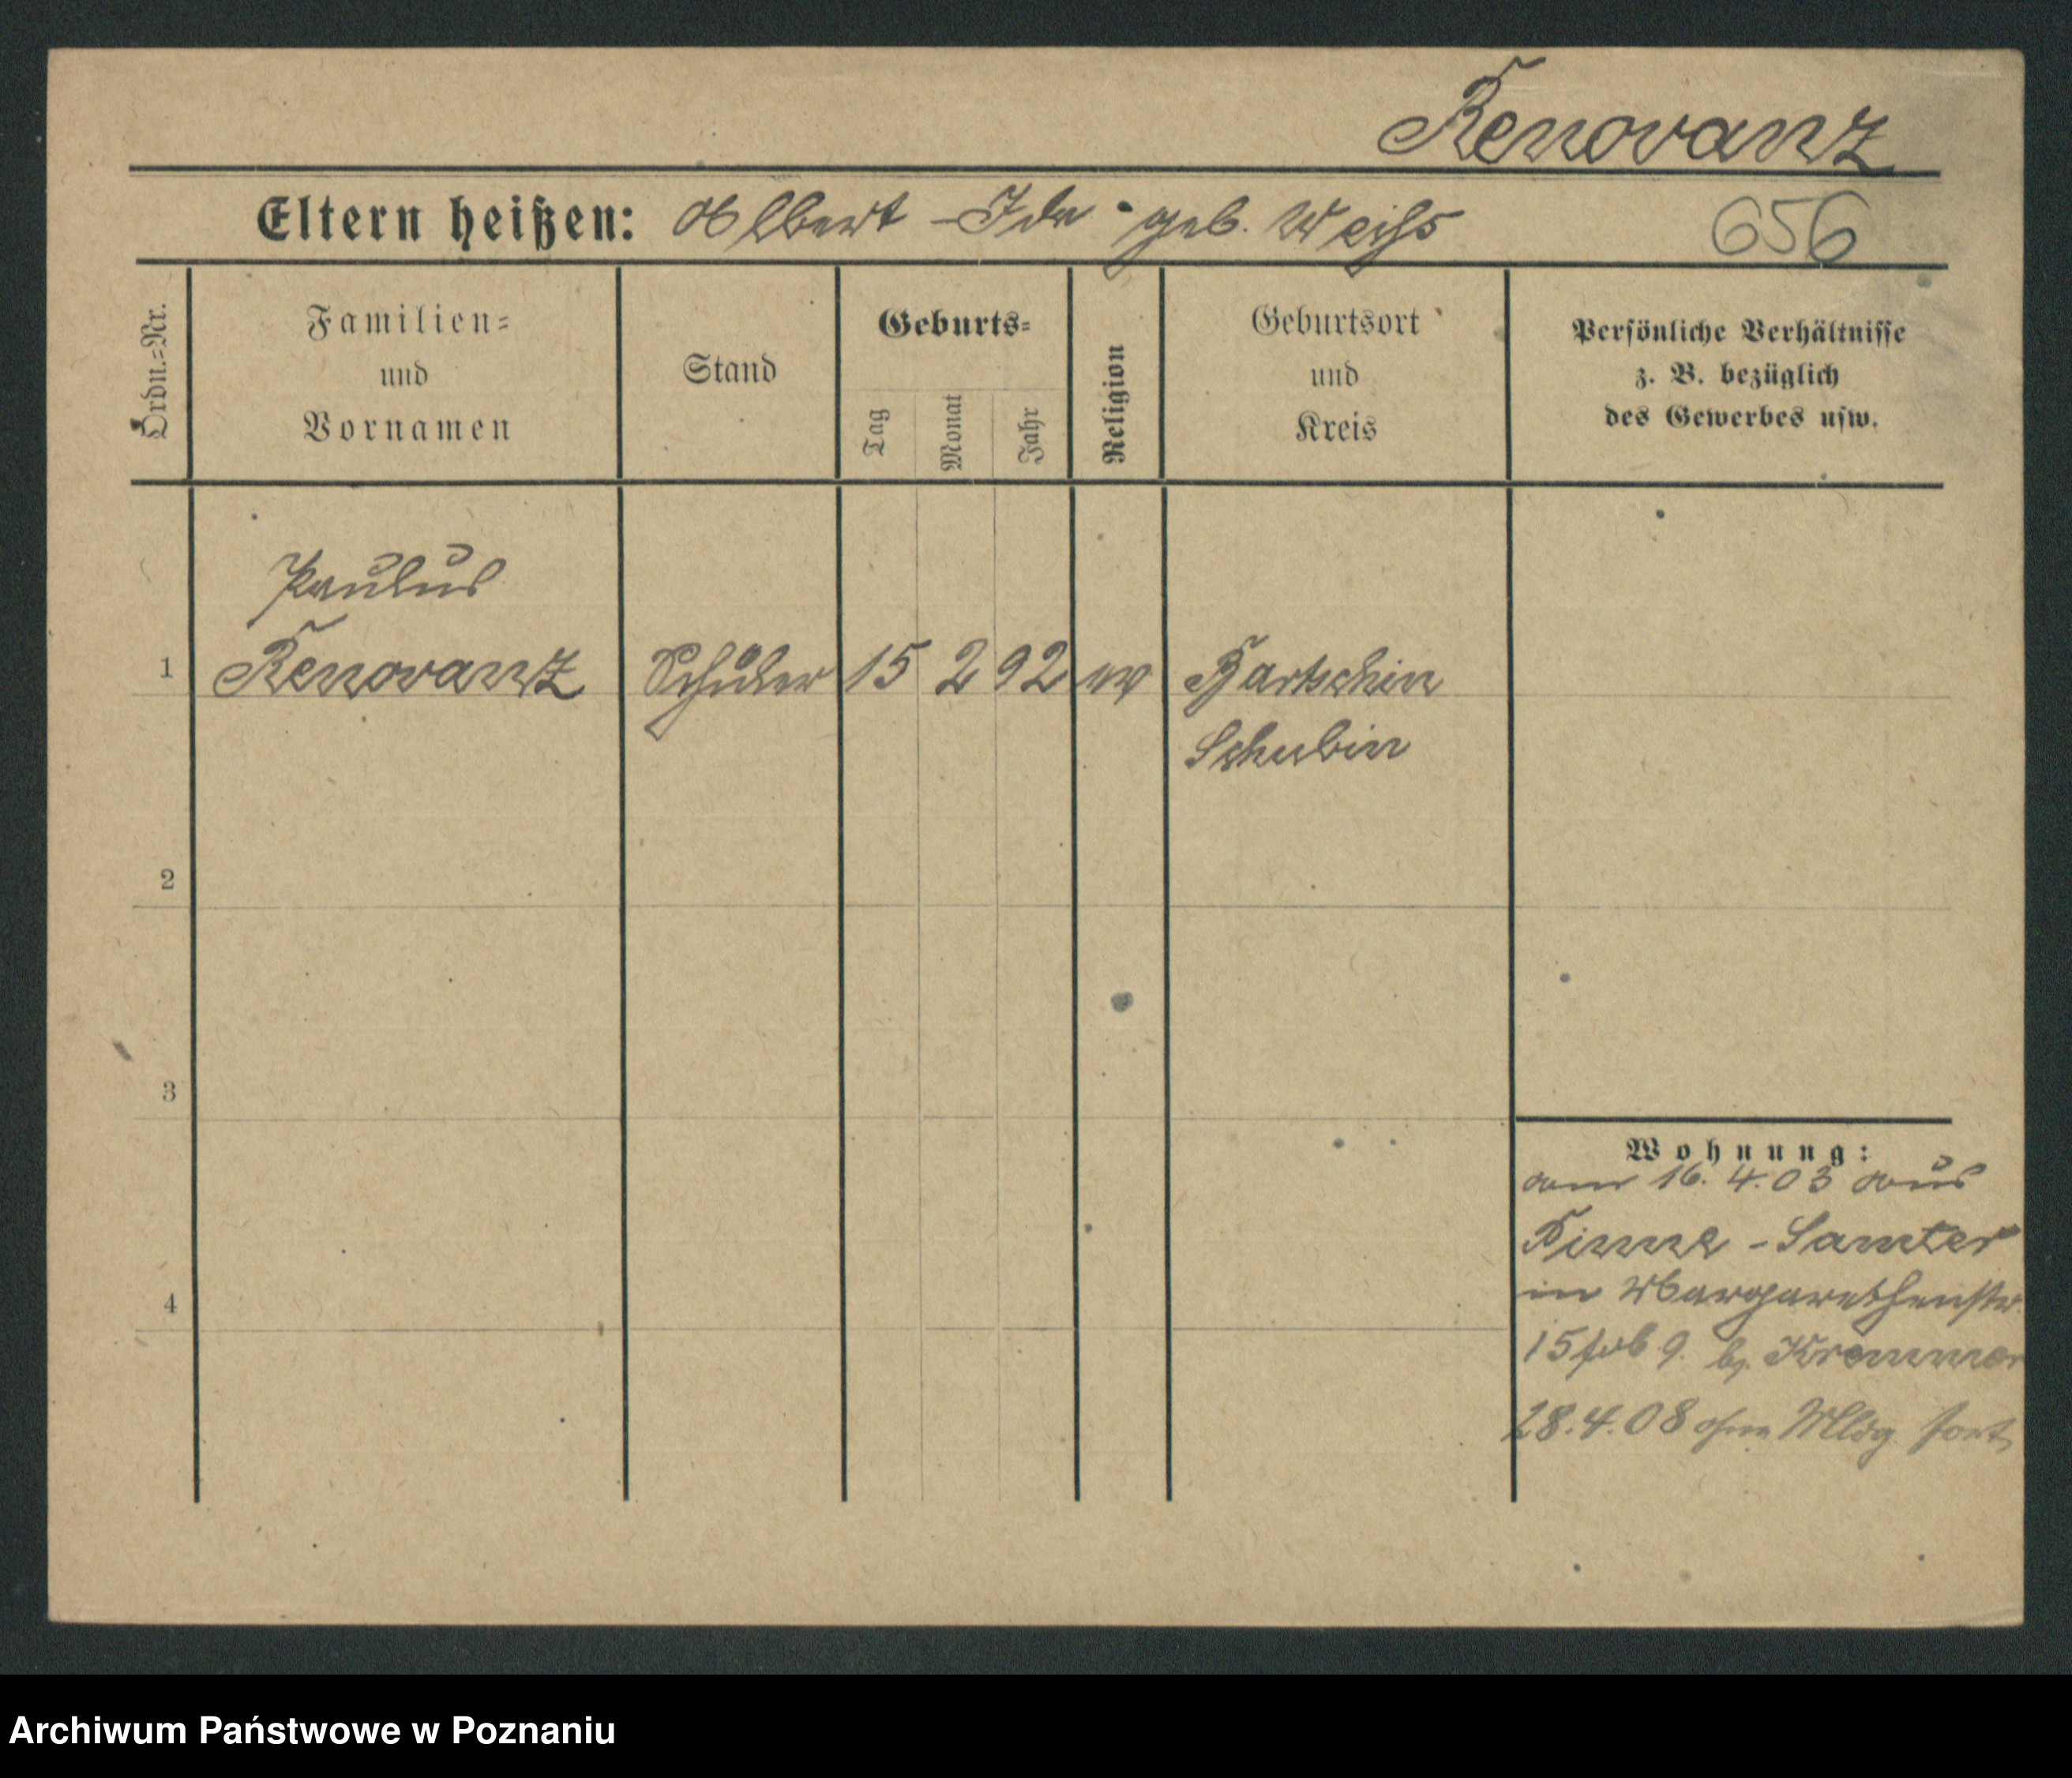 Renovanz
Eltern heißen: Albert - Ida - geb. Weihs
656
Ordn.=Nr.
Familien=
und
Vornamen
Stand
Geburts=
Tag
Monat
Jahr
Religion
Geburtsort
und
Kreis
Persönliche Verhältnisse
z. B. bezüglich
des Gewerbes usw.
Paulus
1 Renovanz Schüler 15 2 92 ev Bartschin
Schubin
2
3
4
Wohnung:
am 16. 4. 03 aus
Pinne - Samter
in Margarethenstr.
15 9. b.
28. 4. 08 ohne Mldg. fort
Archiwum Państwowe w Poznaniu